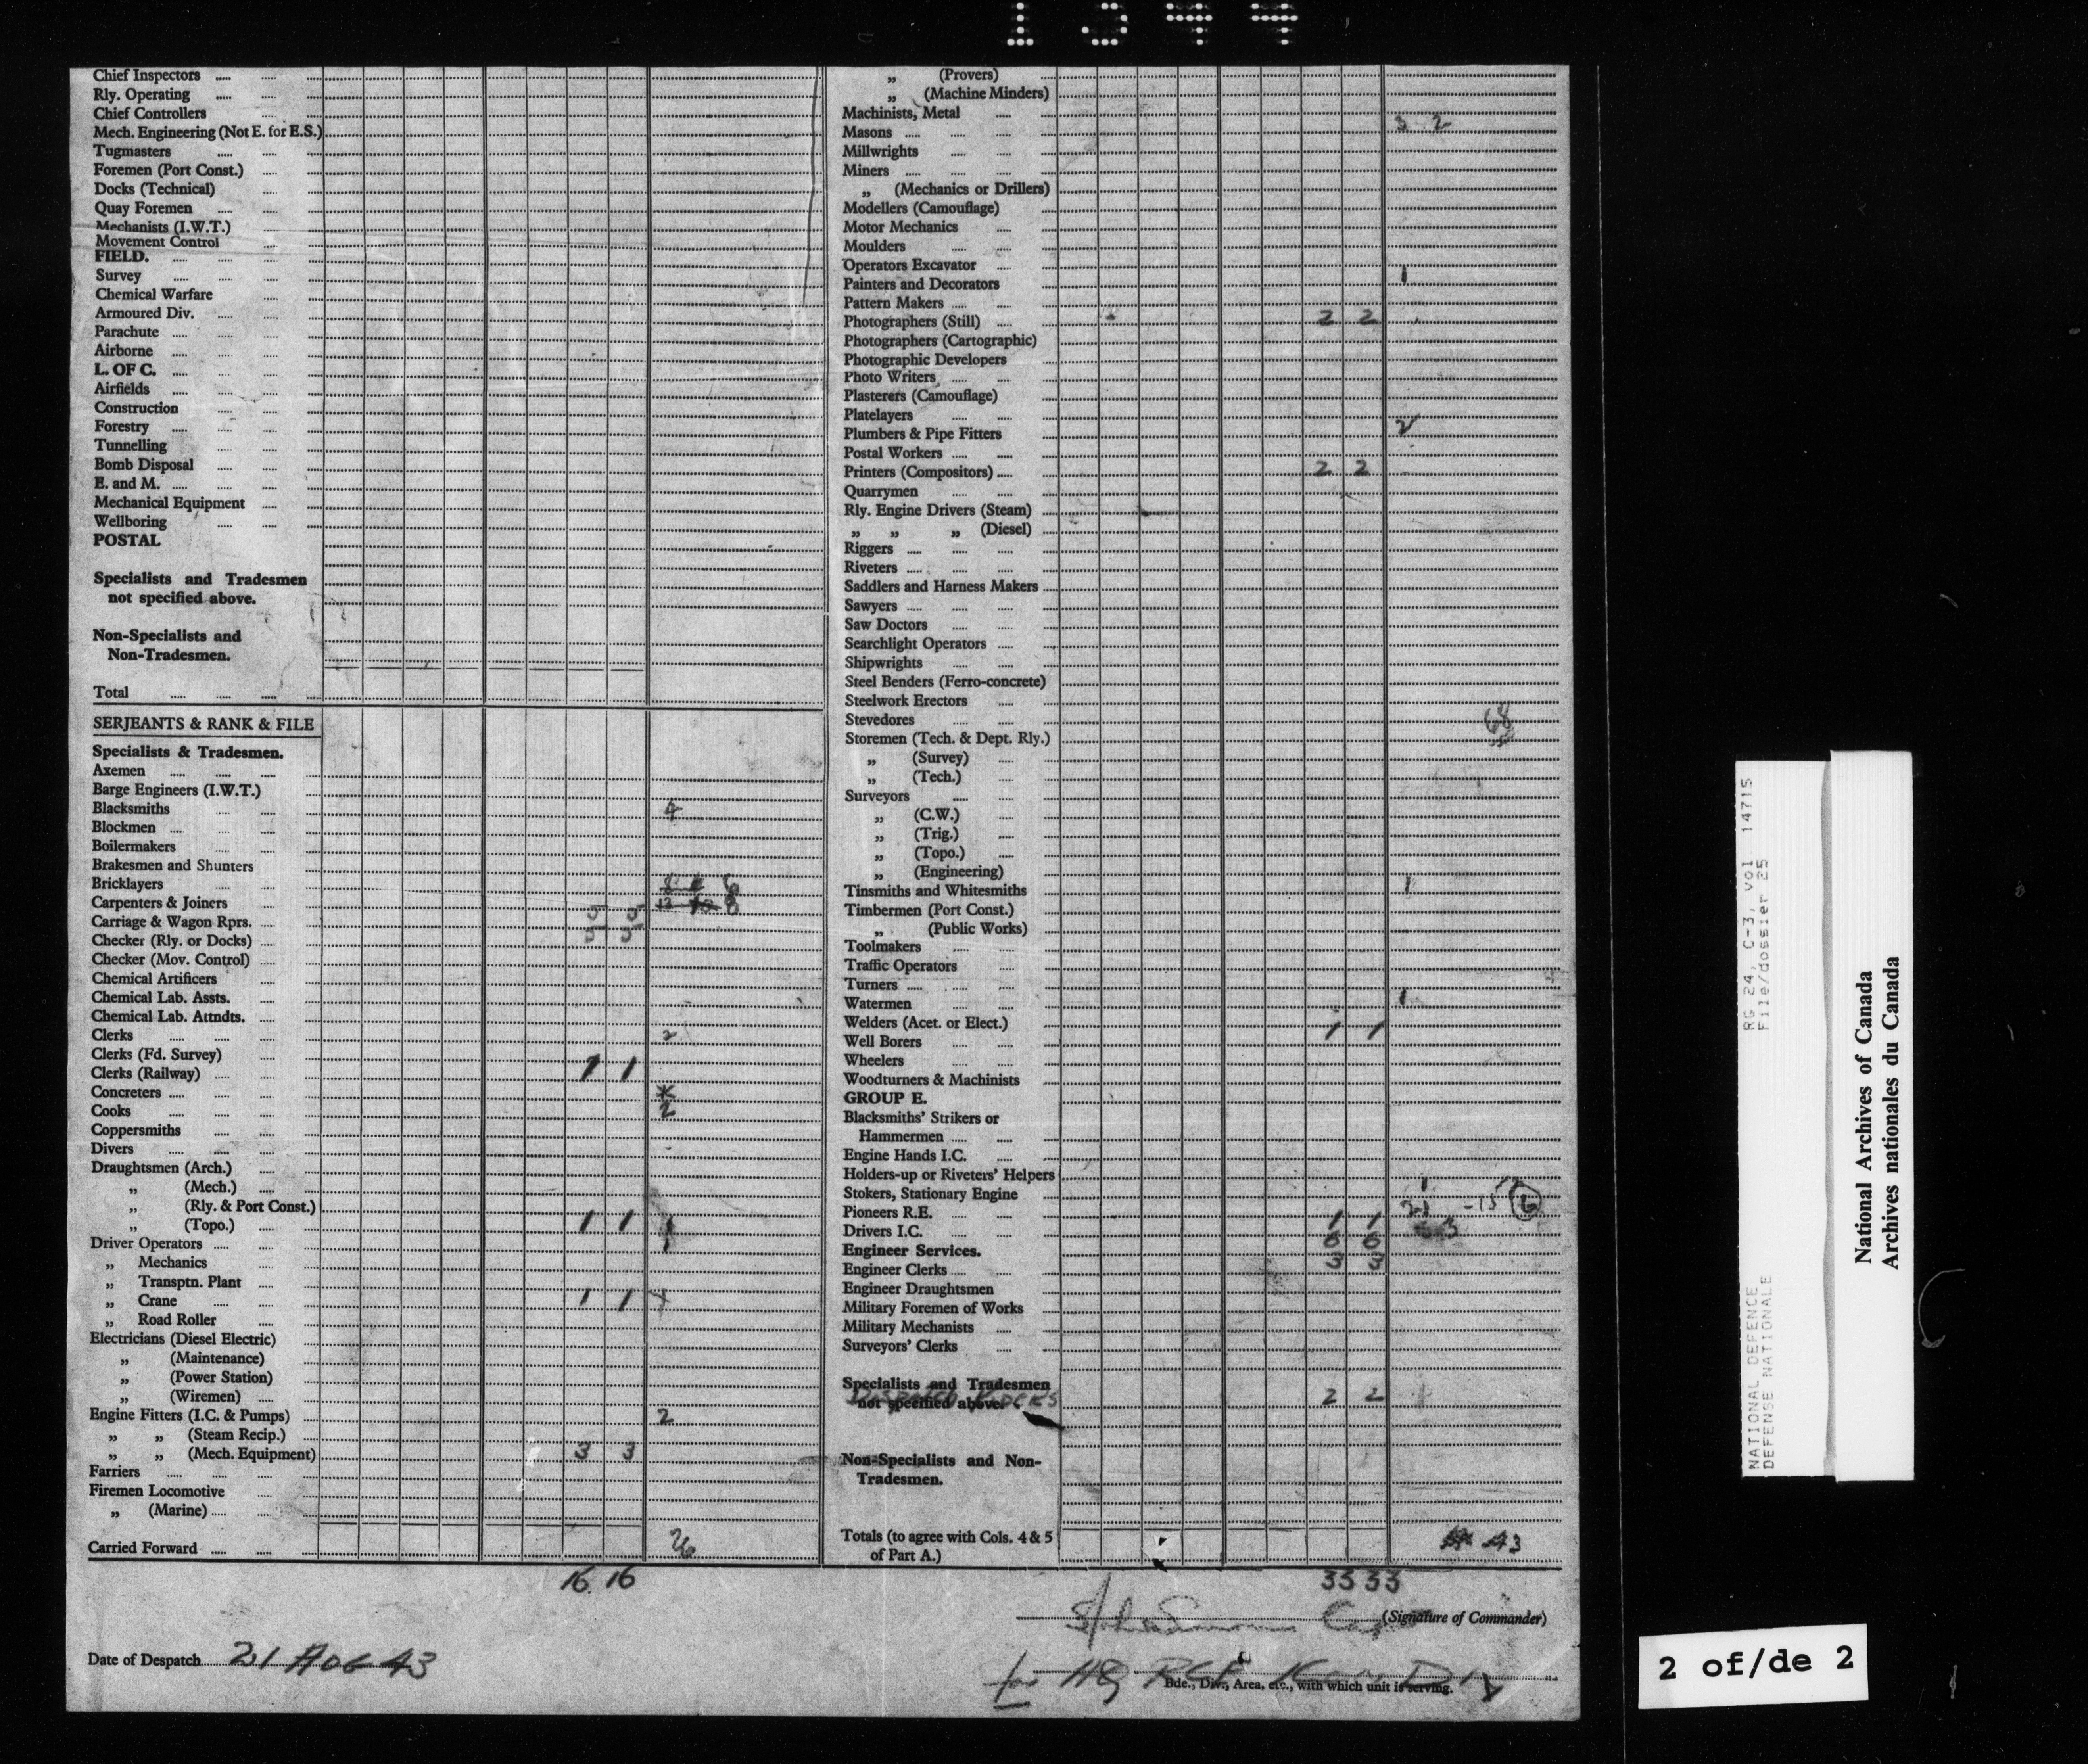 Chief Inspectors
Rly. Operating
Chief Controllers
Mech. Engineering (Not E. for E.S.)
Tugmasters
Foremen (Port Const.)
Docks (Technical)
Quay Foremen
Mechanists (I.W.T.)
Movement Control
FIELD.
Survey
Chemical Warfare
Armoured Div.
Parachute
Airborne
L. OF C.
Airfields
Construction
Forestry
Tunnelling
Bomb Disposal
E. and M.
Mechanical Equipment
Wellboring
POSTAL
Specialists and Tradesmen
not specified above.
Non-Specialists and
Non-Tradesmen.
Total
SERJEANTS & RANK & FILE
Specialists & Tradesmen.
Axemen
Barge Engineers (I.W.T.)
Blacksmiths 4
Blockmen
Boilermakers
Brakesmen and Shunters
Bricklayers 6
Carpenters & Joiners 5 5 8
Carriage & Wagon Rprs. 5 5
Checker (Rly. or Docks)
Checker (Mov. Control)
Chemical Artificers
Chemical Lab. Assts.
Chemical Lab. Attndts.
Clerks 2
Clerks (Fd. Survey)
Clerks (Railway) 1 1
Concreters
Cooks 2
Coppersmiths
Divers
Draughtsmen (Arch.)
„ (Mech.)
„ (Rly. & Port Const.)
„ (Topo.) 1 1 1
Driver Operators 1
„ Mechanics
„ Transptn. Plant
„ Crane 1 1
„ Road Roller
Electricians (Diesel Electric)
„ (Maintenance)
„ (Power Station)
„ (Wiremen)
Engine Fitters (I.C. & Pumps) 2
„ „ (Steam Recip.)
„ „ (Mech. Equipment) 3 3
Farriers
Firemen Locomotive
„ (Marine)
Carried Forward 26
16 16
„ (Provers)
„ (Machine Minders)
Machinists, Metal
Masons 3 2
Millwrights
Miners
„ (Mechanics or Drillers)
Modellers (Camouflage)
Motor Mechanics
Moulders
Operators Excavator 1
Painters and Decorators
Pattern Makers
Photographers (Still) 2 2
Photographers (Cartographic)
Photographic Developers
Photo Writers
Plasterers (Camouflage)
Platelayers
Plumbers & Pipe Fitters 2
Postal Workers
Printers (Compositors) 2 2
Quarrymen
Rly. Engine Drivers (Steam)
„ „ „ (Diesel)
Riggers
Riveters
Saddlers and Harness Makers
Sawyers
Saw Doctors
Searchlight Operators
Shipwrights
Steel Benders (Ferro-concrete)
Steelwork Erectors
Stevedores 68
Storemen (Tech. & Dept. Rly.)
„ (Survey)
„ (Tech.)
Surveyors
„ (C.W.)
„ (Trig.)
„ (Topo.)
„ (Engineering)
Tinsmiths and Whitesmiths 1
Timbermen (Port Const.)
„ (Public Works)
Toolmakers
Traffic Operators
Turners
Watermen 1
Welders (Acet. or Elect.) 1 1
Well Borers
Wheelers
Woodturners & Machinists
GROUP E.
Blacksmiths' Strikers or
Hammermen
Engine Hands I.C.
Holders-up or Riveters' Helpers
Stokers, Stationary Engine 1
Pioneers R.E. 1 1 21 -15 6
Drivers I.C. 6 6 3
Engineer Services. 3 3
Engineer Clerks
Engineer Draughtsmen
Military Foremen of Works
Military Mechanists
Surveyors' Clerks
Specialists and Tradesmen
not specified above. 2 2
Non-Specialists and Non-
Tradesmen.
Totals (to agree with Cols. 4 & 5
of Part A.) 43
33 33
(Signature of Commander)
Date of Despatch 21 AUG 43
for HQ RCE
Bde., Div., Area, etc., with which unit is serving.
RG 24, C-3, vol 14715
File/dossier 25
NATIONAL DEFENCE
DEFENSE NATIONALE
National Archives of Canada
Archives nationales du Canada
2 of/de 2